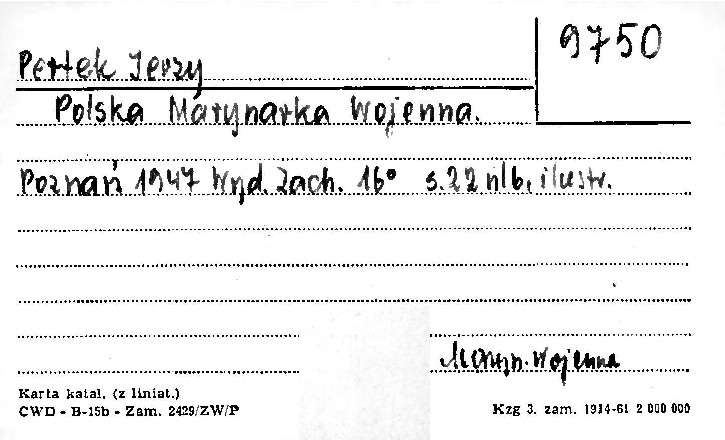 9750
Pertek Jerzy
Polska Marynarka Wojenna.
Poznań 1947 Wyd. Zach. 16° s.22 nlb, ilustr.
Maryn. Wojenna
Karta katal. (z liniat.)
CWD - B-15b - Zam. 2429/ZW/P
Kzg 3. zam. 1914-61 2 000 000